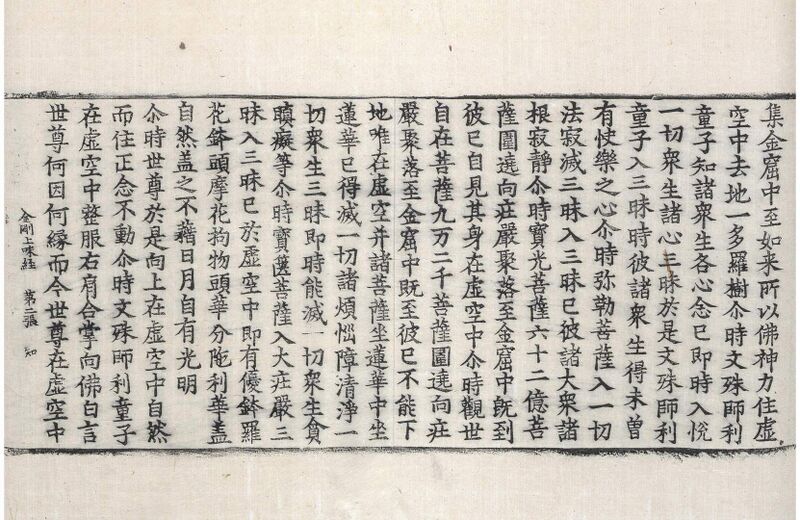 集金窟中至如来所以佛神力住虛
空中去地一多羅樹尒時文殊師利
童子知諸衆生各心念已即時入悅
一切衆生諸心三昧於是文殊師利
童子入三昧時彼諸衆生得未曾
有快樂之心尒時弥勒菩薩入一切
法寂滅三昧入三昧已彼諸大衆諸
根寂靜尒時寶光菩薩六十二億菩
薩圍遶向庄嚴聚落至金窟中旣到
彼已自見其身在虛空中尒時觀世
自在菩薩九万二千菩薩圍遶向庄
嚴聚落至金窟中旣至彼已不能下
地唯在虛空并諸菩薩坐蓮華中坐
蓮華已得滅一切諸煩惱障清淨一
切衆生三昧即時能滅一切衆生貪
瞋癡等尒時寶篋菩薩入大庄嚴三
昧入三昧已於虛空中即有優鉢羅
花鉢頭摩花拘物頭華分陁利華盖
自然盖之不藉日月自有光明
尒時世尊於是向上在虛空中自然
而住正念不動尒時文殊師利童子
在虛空中整服右肩合掌向佛白言
世尊何因何緣而今世尊在虛空中
金剛上味経 第二張 知